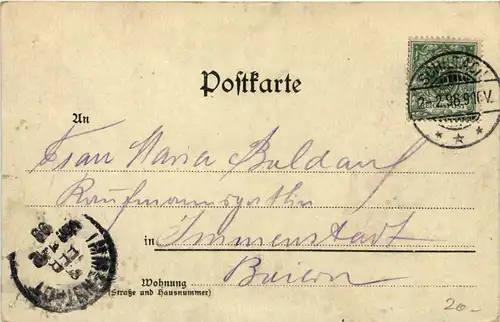 Postkarte
An
Frau Maria Baldauf
Kaufmannsgattin
in Immenstadt
Baiern
Wohnung
(Straße und Hausnummer)
20-